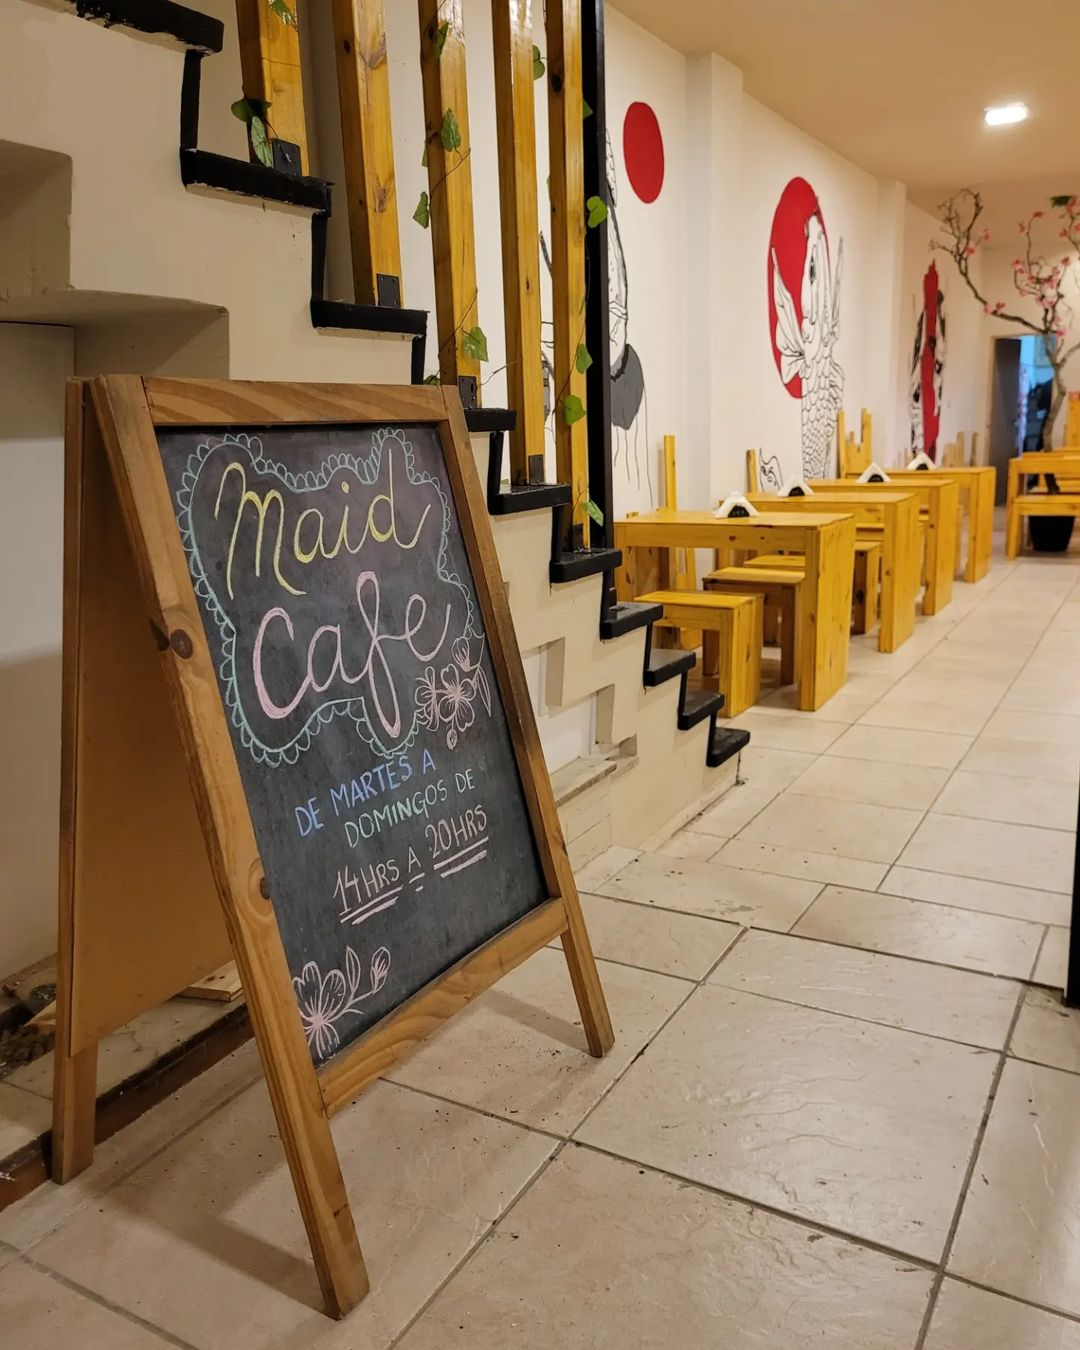 Maid
Cafe
DE MARTES A
DOMINGOS DE
14HRS A 20HRS